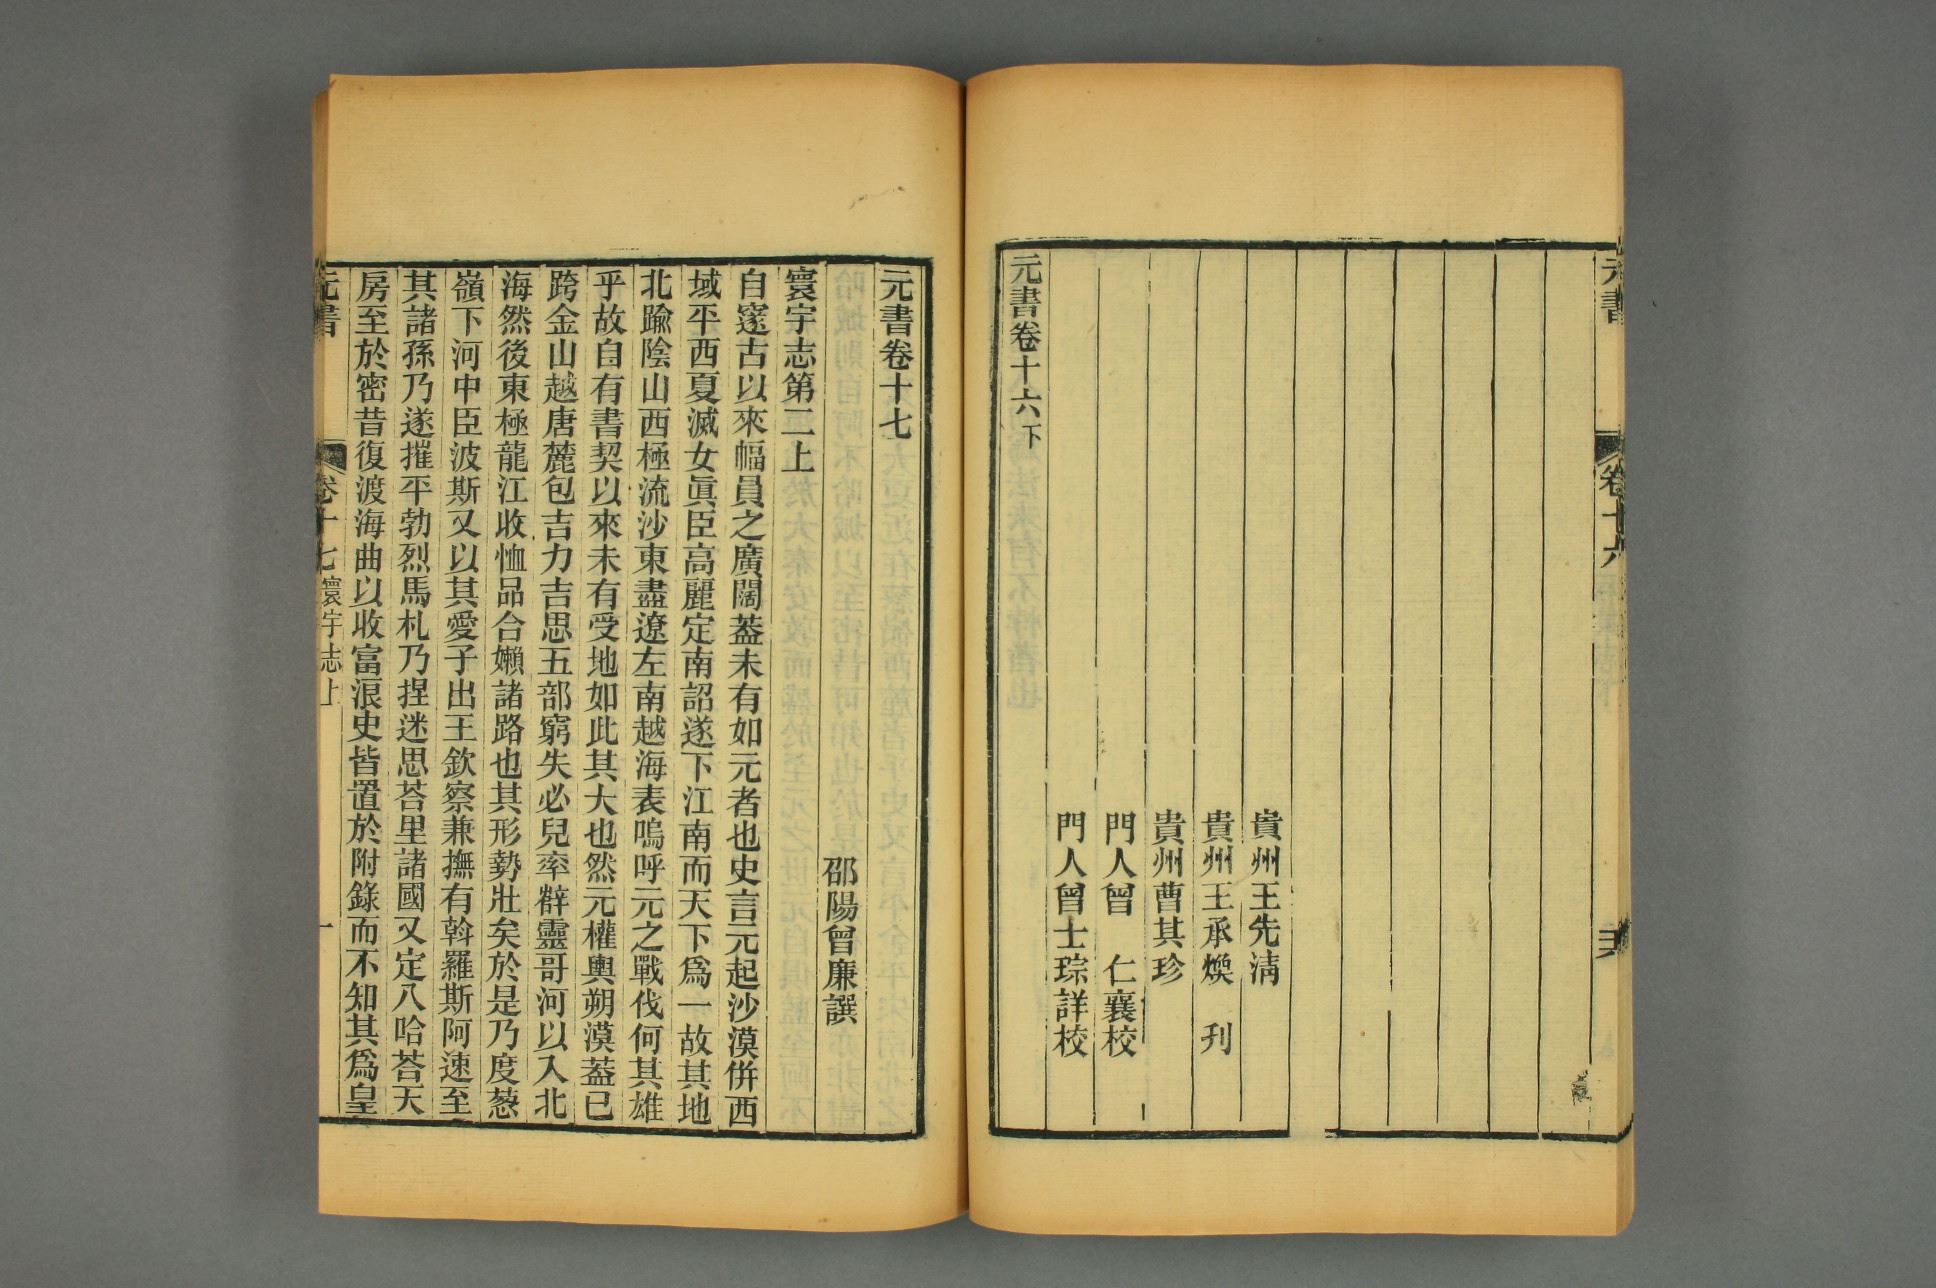 元書
卷十六
貴州王先淸
貴州王承煥 刋
貴州曹其珍
門人曾 仁襄校
門人曾士琮詳校
元書卷十六下
元書卷十七
邵陽曾廉譔
寰宇志第二上
自邃古以來幅員之廣闊蓋未有如元者也史言元起沙漠倂西
域平西夏滅女眞臣高麗定南詔遂下江南而天下爲一故其地
北踰陰山西極流沙東盡遼左南越海表嗚呼元之戰伐何其雄
乎故自有書契以來未有受地如此其大也然元權輿朔漠蓋已
跨金山越唐麓包吉力吉思五部窮失必兒率辥靈哥河以入北
海然後東極龍江收恤品合嬾諸路也其形勢壯矣於是乃度葱
嶺下河中臣波斯又以其愛子出王欽察兼撫有斡羅斯阿速至
其諸孫乃遂摧平勃烈馬札乃捏迷思荅里諸國又定八哈荅天
房至於密昔復渡海曲以收富浪史皆置於附錄而不知其爲皇
元書
卷十七
寰宇志上
一